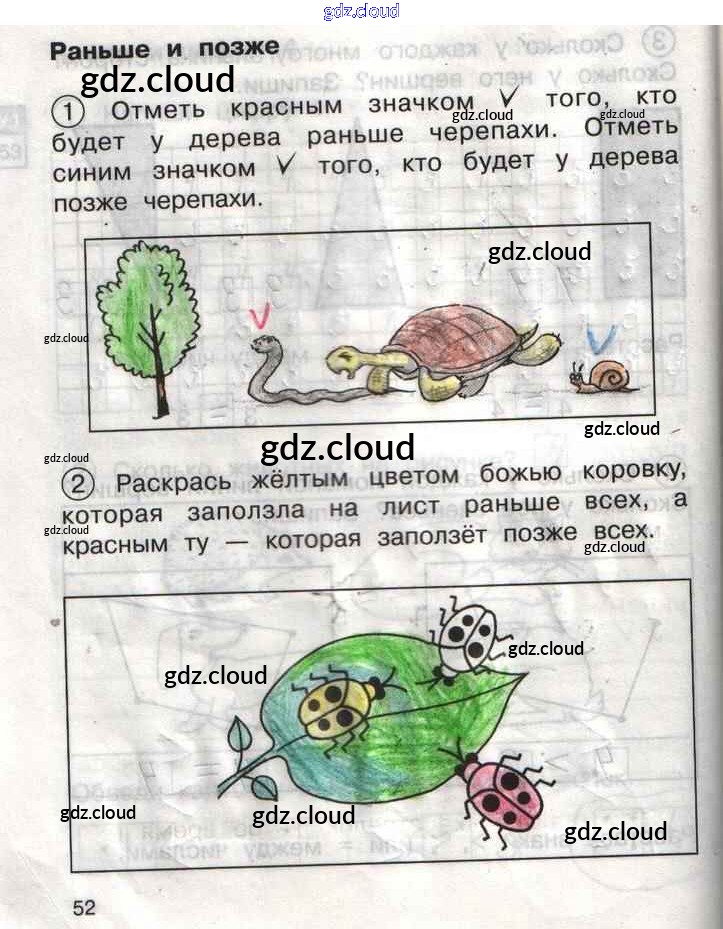 gdz.cloud
Раньше и позже
gdz.cloud
1 Отметь красным значком V того, кто
gdz.cloud gdz.cloud
будет у дерева раньше черепахи. Отметь
синим значком V того, кто будет у дерева
позже черепахи.
gdz.cloud
V
gdz.cloud
V
gdz.cloud
gdz.cloud
gdz.cloud
2 Раскрась жёлтым цветом божью коровку,
которая заползла на лист раньше всех, а
gdz.cloud
красным ту — которая заползёт позже всех.
gdz.cloud
gdz.cloud
gdz.cloud
gdz.cloud
gdz.cloud
gdz.cloud
52